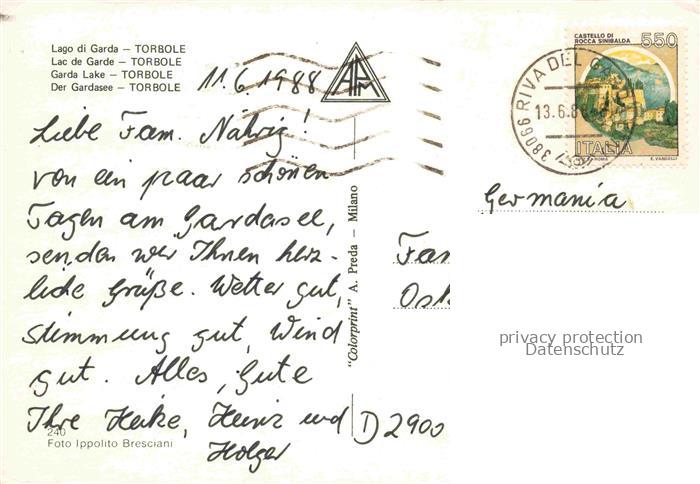 Lago di Garda – TORBOLE
Lac de Garde – TORBOLE
Garda Lake – TORBOLE
Der Gardasee – TORBOLE
APM
CASTELLO DI
ROCCA SINIBALDA
550
ITALIA
38066 RIVA DEL
13.6.8
11.6.1988
Liebe Fam. Nährig!
von ein paar schönen
Tagen am Gardasee,
senden wir Ihnen herz-
liche Grüße. Wetter gut,
Stimmung gut, Wind
gut. Alles Gute
Ihre Heike, Heinz und
Holger
240
Foto Ippolito Bresciani
"Colorprint" A. Preda – Milano
Germania
Fam
Ost
privacy protection
Datenschutz
D 2900